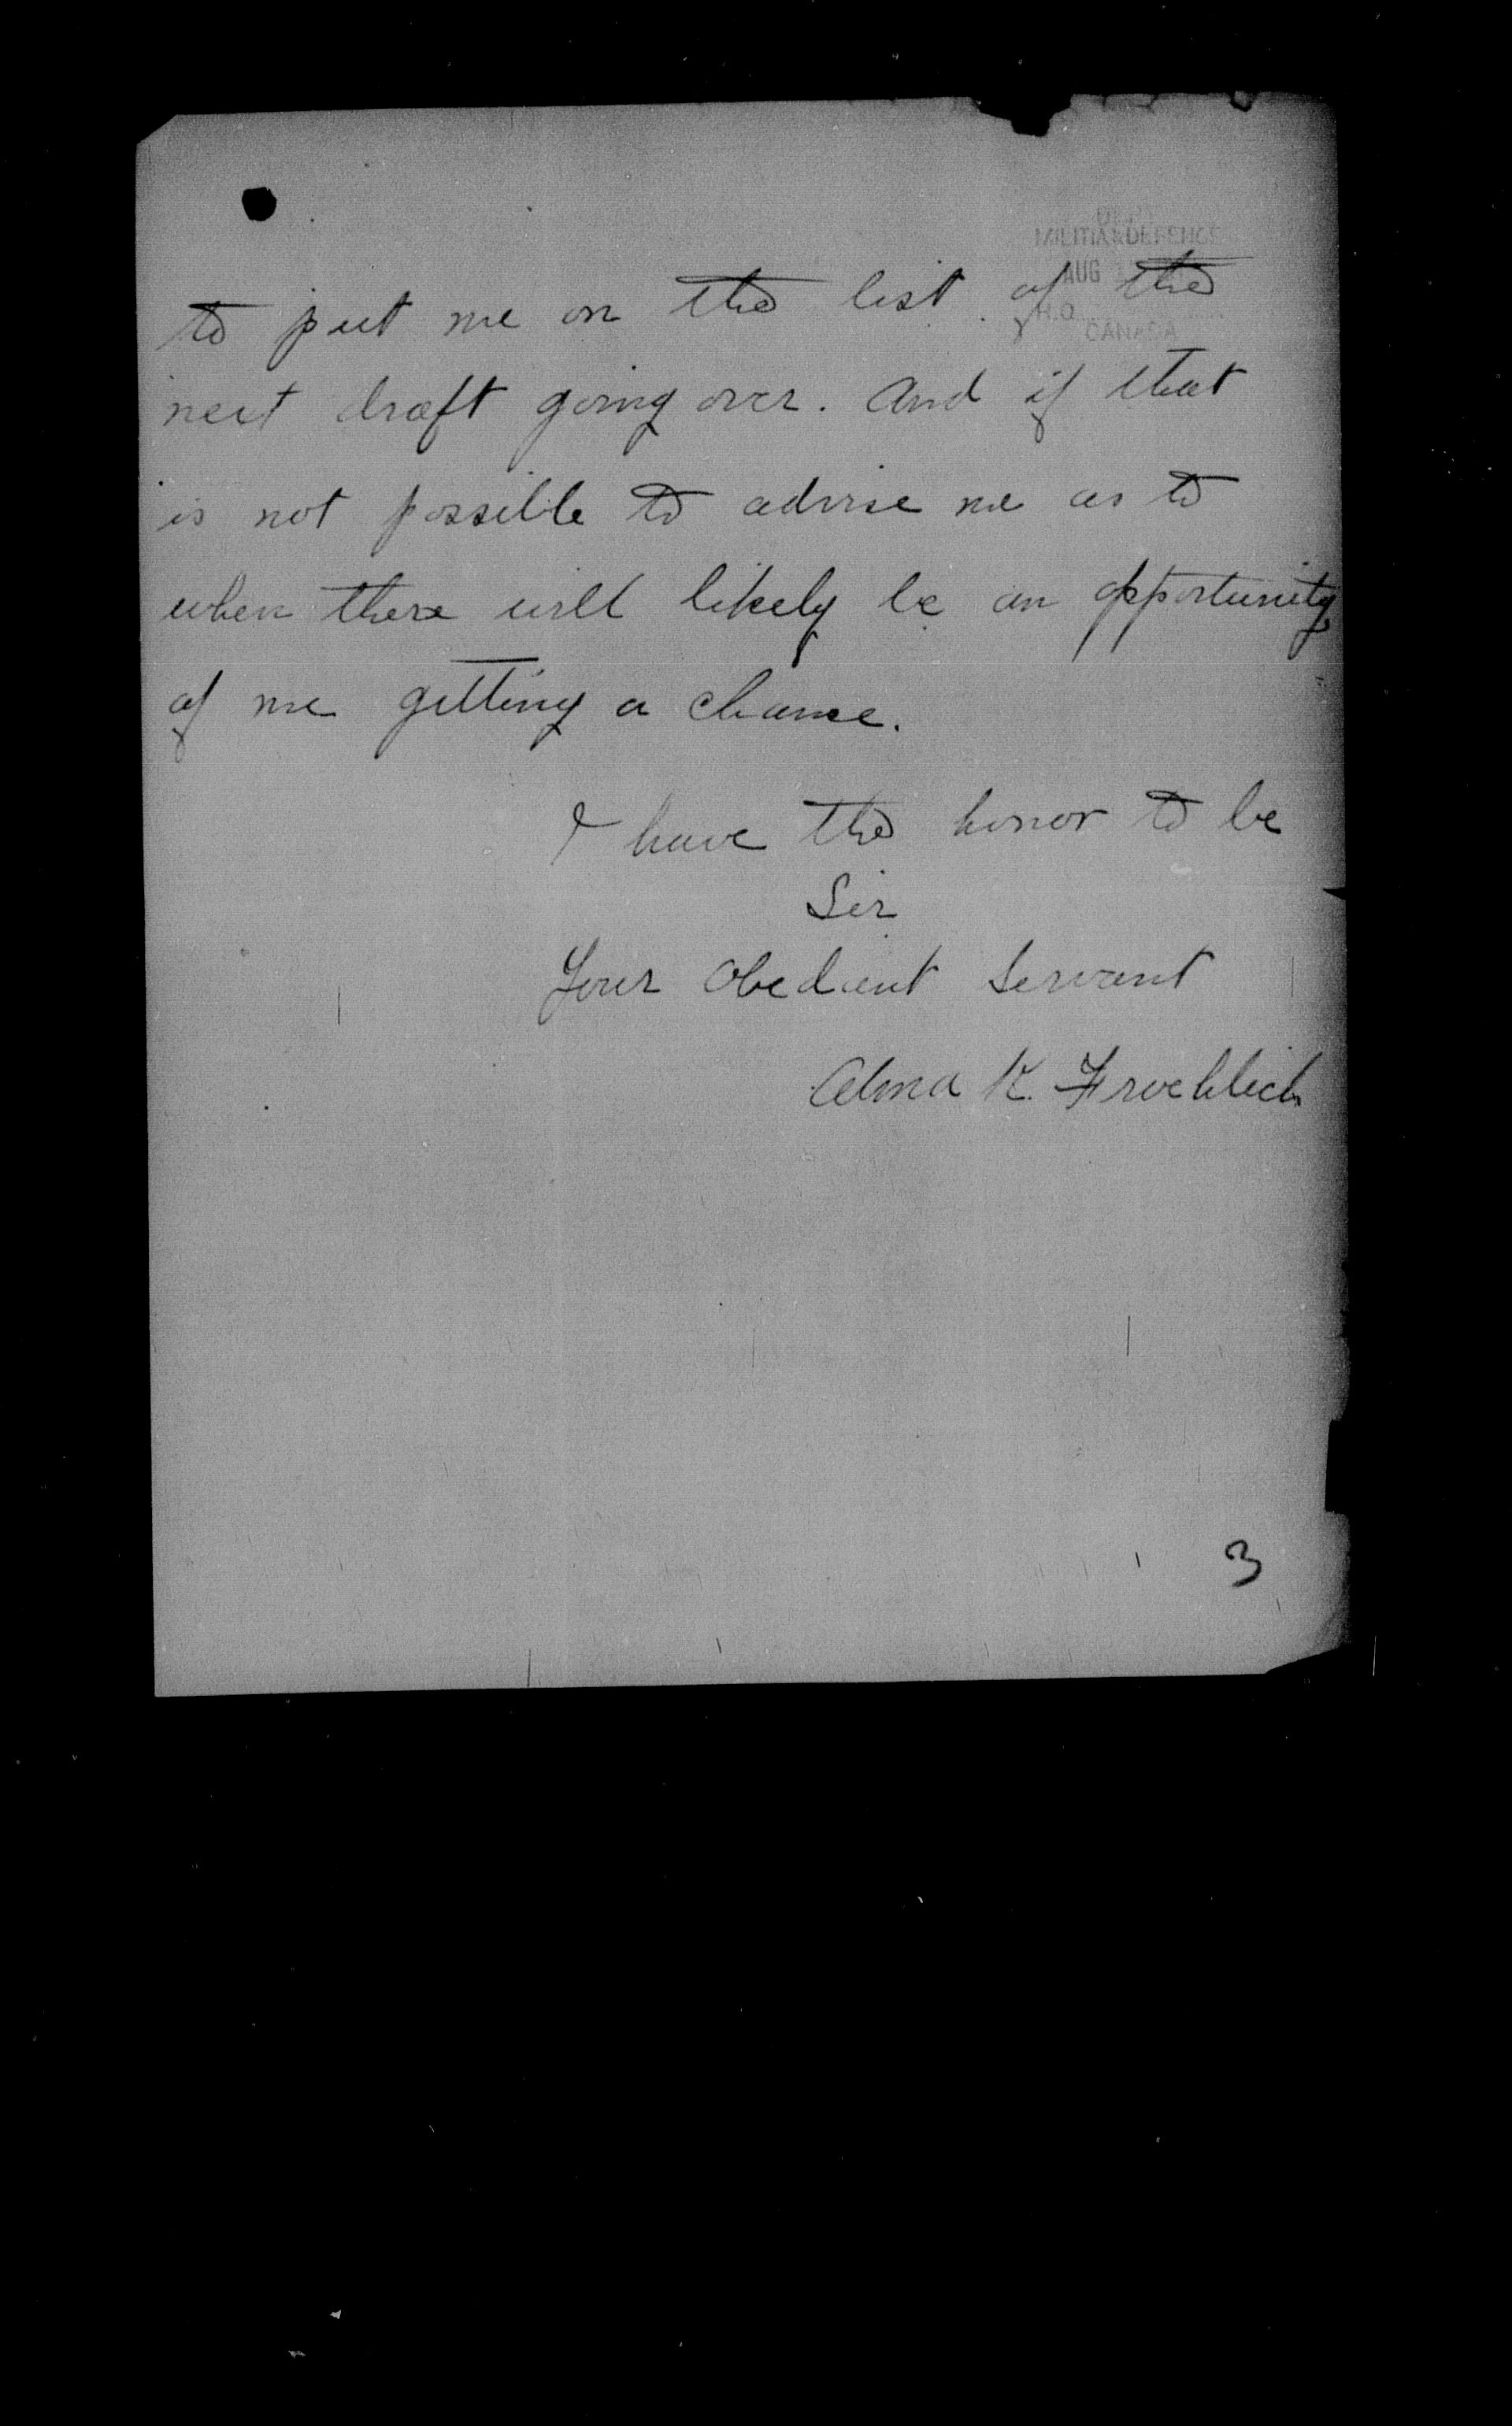 DEPT
MILITIA & DEFENCE
AUG
H.Q.
CANADA
to put me on the list of the
next draft going over. And if that
is not possible to advise me as to
when there will likely be an opportunity
of me getting a chance.
I have the honor to be
Sir
Your Obediant Servant
Alma K. Froehlich
3